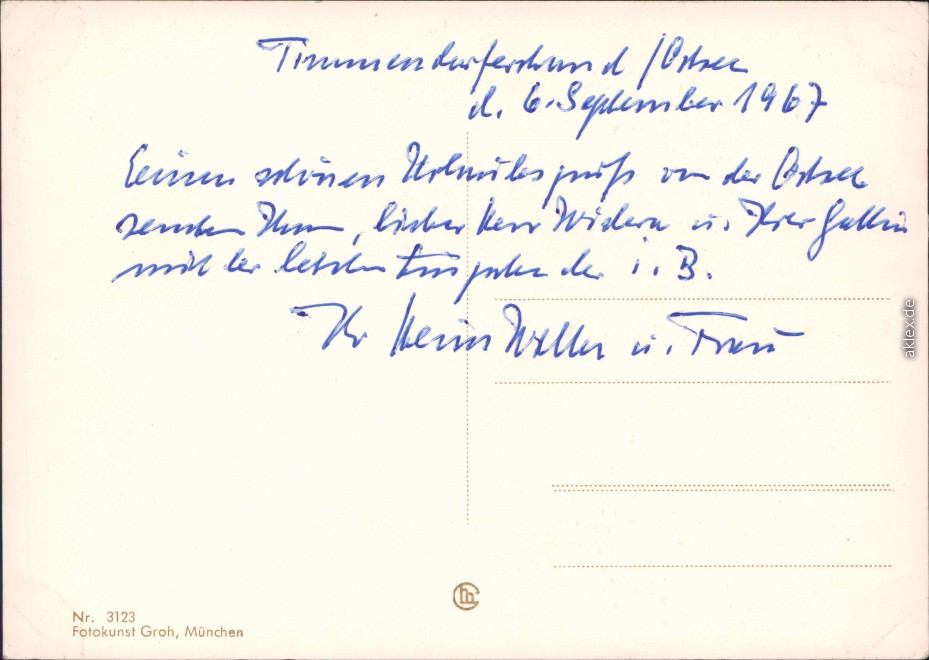 Timmendorferstrand / Ostsee
d. 6. September 1967
Einen schönen Urlaubsgruß von der Ostsee
senden Ihnen, lieber Herr Widera u. Ihrer Gattin
mit der letzten Ausgabe der i. B.
Ihr Heinz Welter u. Frau
Nr. 3123
Fotokunst Groh, München
aklex.de